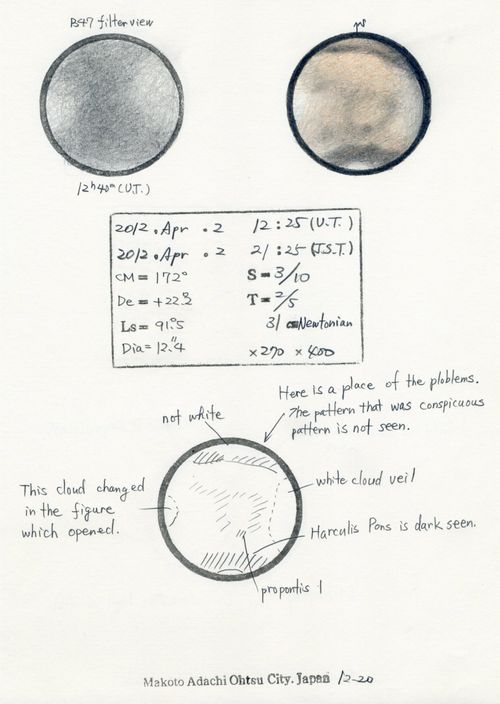 B47 filter view
N
12h40m (U.T.)
2012 . Apr . 2 12 : 25 (U.T.)
2012 . Apr . 2 21 : 25 (J.S.T.)
CM = 172° S = 3/10
De = +22.°2 T = 2/5
Ls = 91.°5 31 cm Newtonian
Dia = 12."4 ×270 ×400
Here is a place of the ploblems.
The pattern that was conspicuous
pattern is not seen.
not white
This cloud changed
in the figure
which opened.
white cloud veil
Harculis Pons is dark seen.
propontis 1
Makoto Adachi Ohtsu City. Japan 12-20